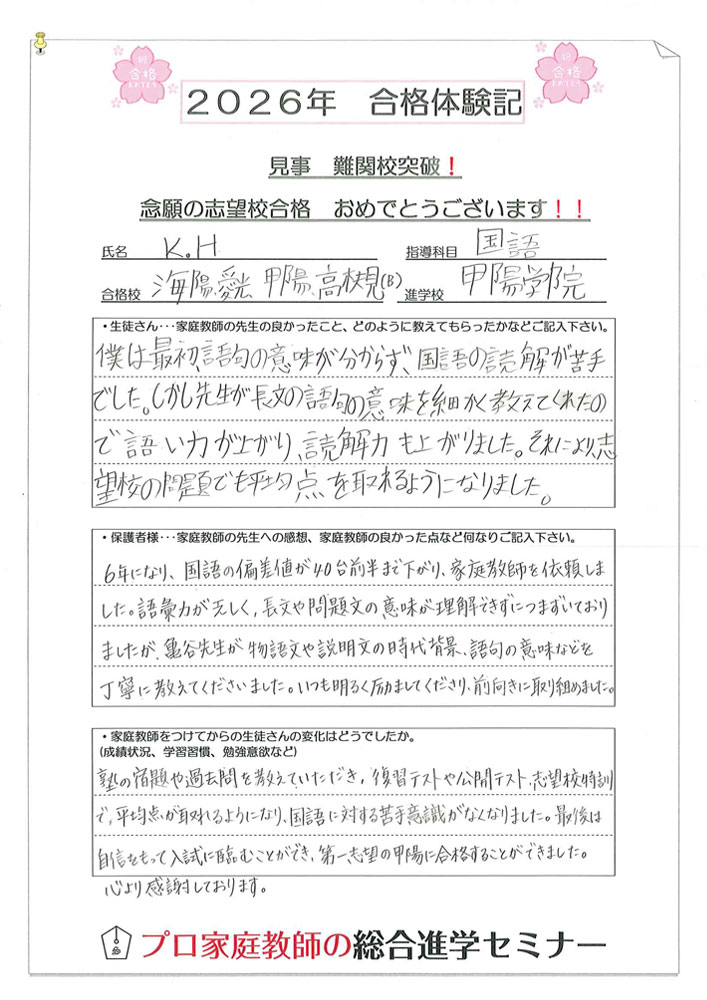 祝
合格
おめでとう
祝
合格
おめでとう
2026年 合格体験記
見事 難関校突破!
念願の志望校合格 おめでとうございます!!
氏名 K.H 指導科目 国語
合格校 海陽、愛光、甲陽、高槻(B) 進学校 甲陽学院
・生徒さん･･･家庭教師の先生の良かったこと、どのように教えてもらったかなどご記入下さい。
僕は最初、語句の意味が分からず、国語の読解が苦手
でした。しかし先生が長文の語句の意味を細かく教えてくれたの
で語い力が上がり、読解力も上がりました。それにより、志
望校の問題でも平均点を取れるようになりました。
・保護者様･･･家庭教師の先生への感想、家庭教師の良かった点など何なりご記入下さい。
6年になり、国語の偏差値が40台前半まで下がり、家庭教師を依頼しま
した。語彙力が乏しく、長文や問題文の意味が理解できずにつまずいており
ましたが、亀谷先生が物語文や説明文の時代背景、語句の意味などを
丁寧に教えてくださいました。いつも明るく励ましてくださり、前向きに取り組めました。
・家庭教師をつけてからの生徒さんの変化はどうでしたか。
(成績状況、学習習慣、勉強意欲など)
塾の宿題や過去問を教えていただき、復習テストや公開テスト、志望校特訓
で、平均点が取れるようになり、国語に対する苦手意識がなくなりました。最後は
自信をもって入試に臨むことができ、第一志望の甲陽に合格することができました。
心より感謝しております。
プロ家庭教師の総合進学セミナー